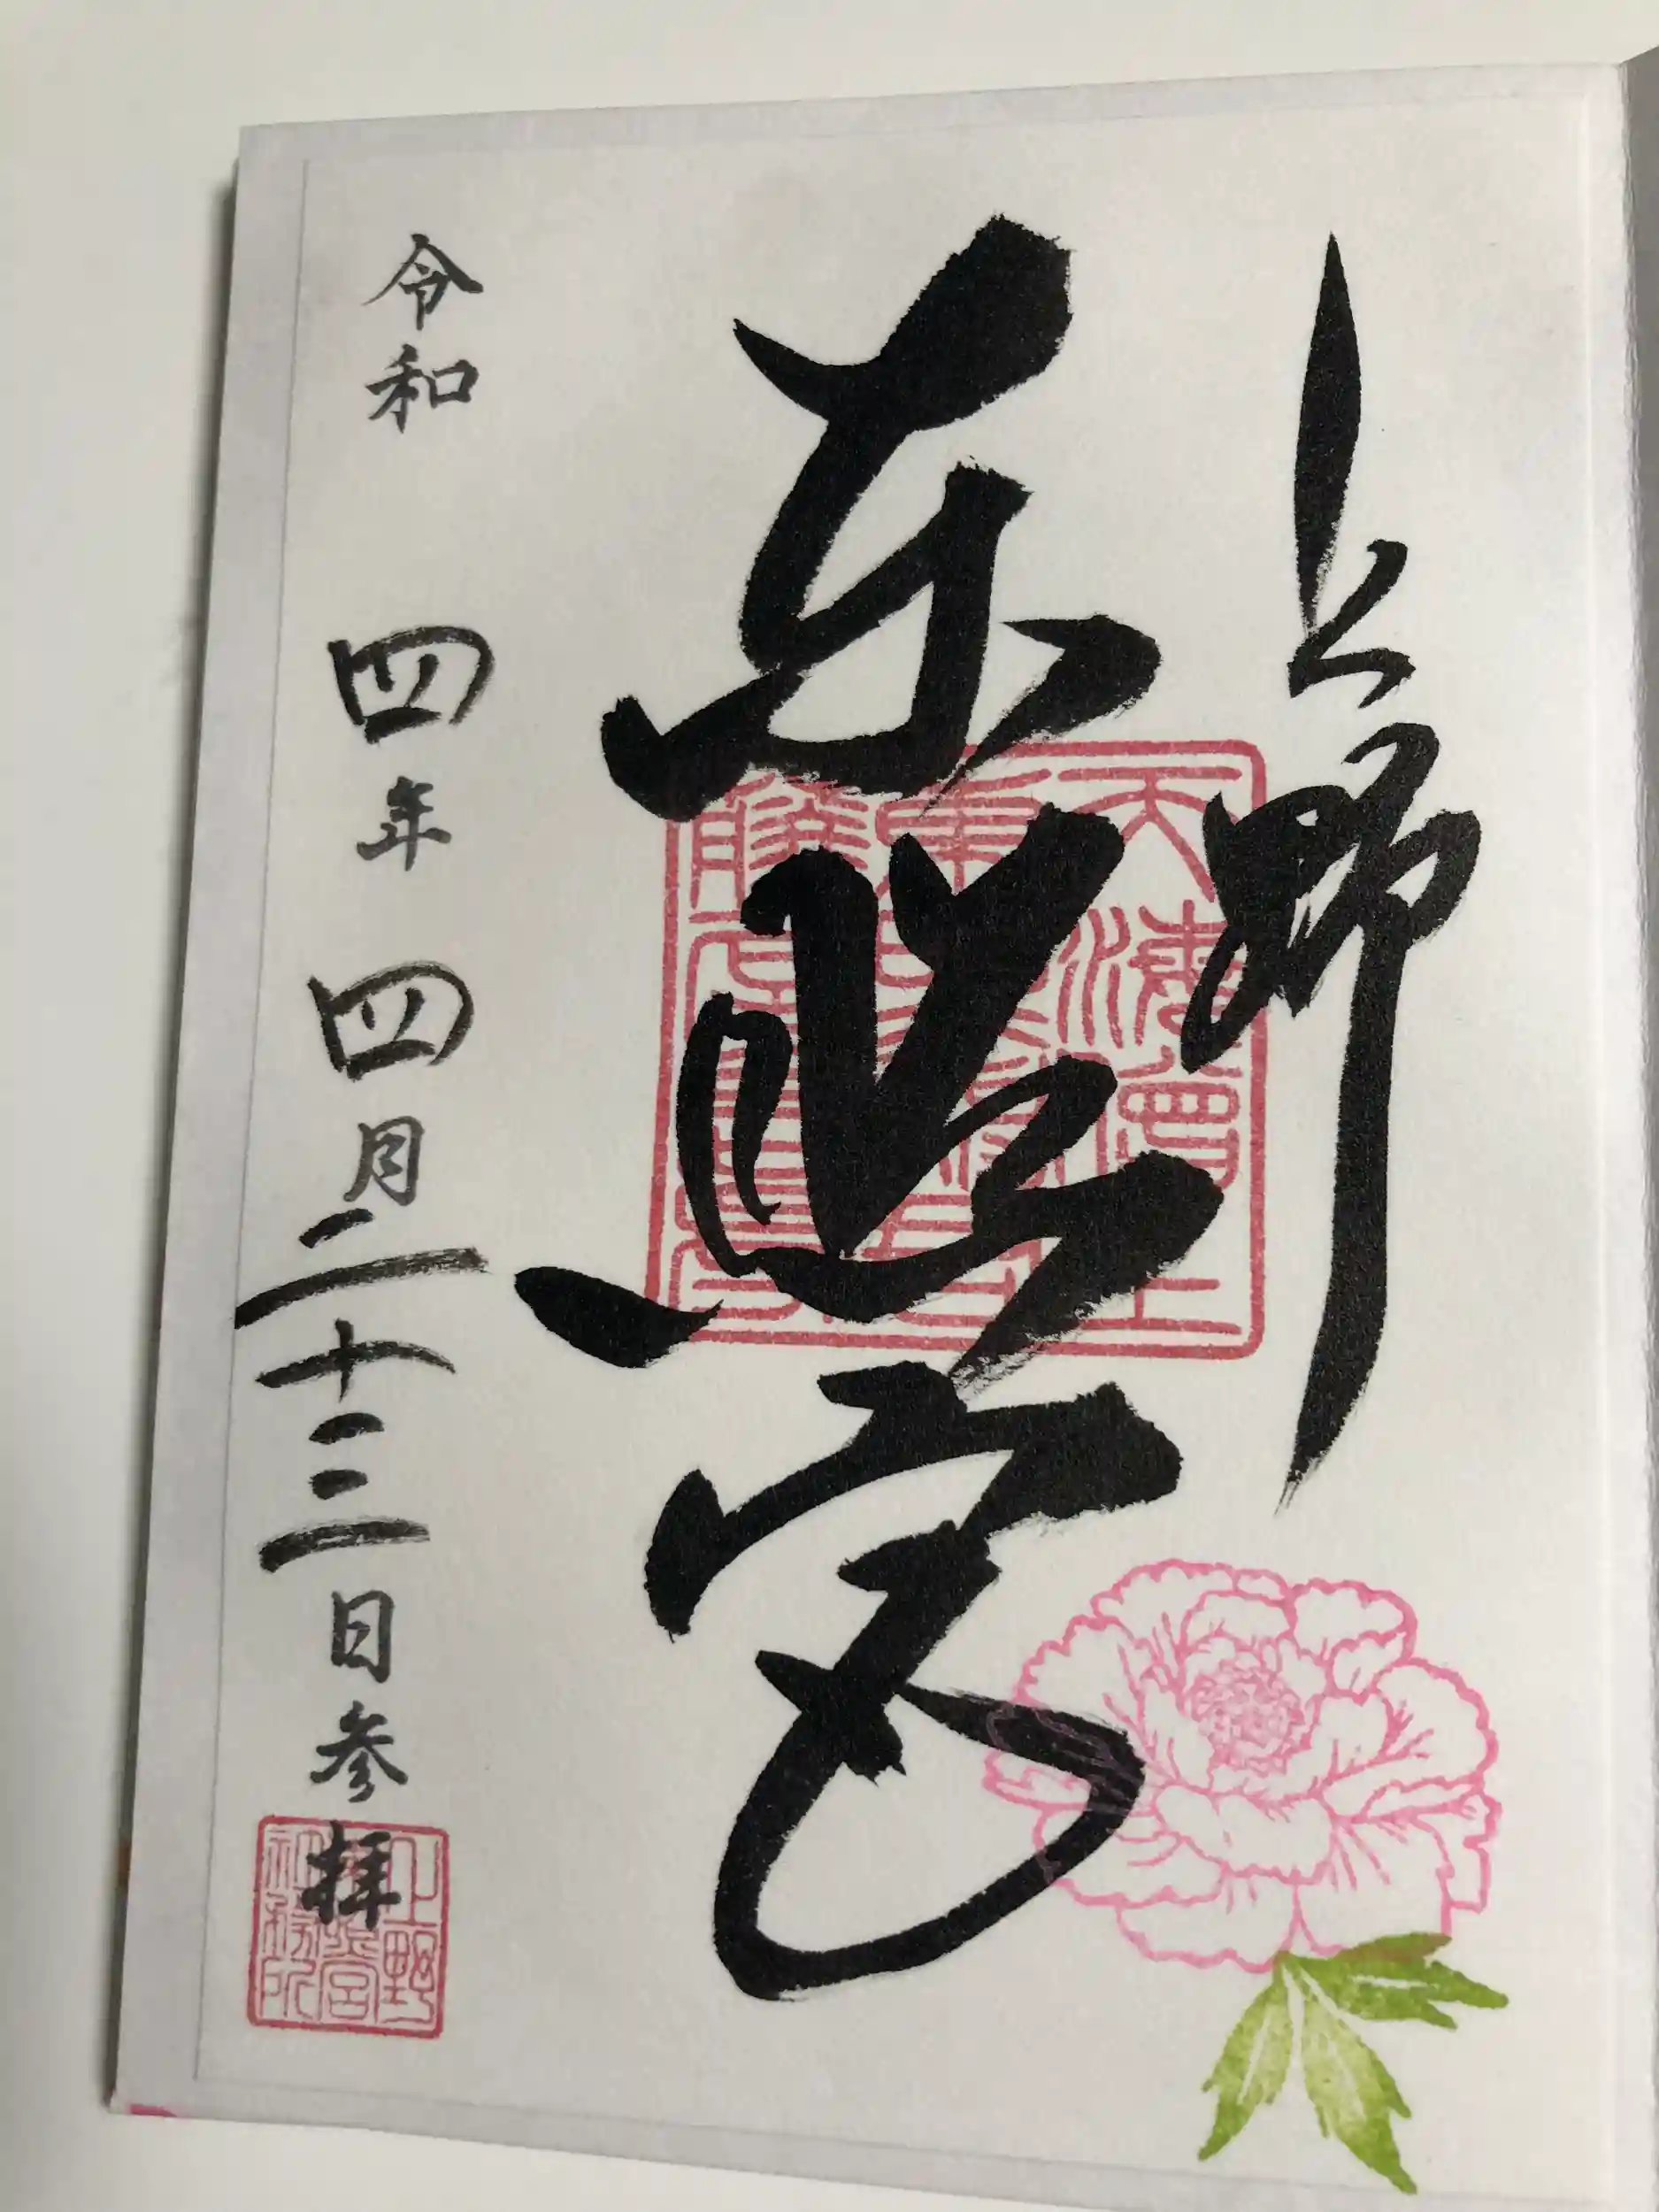 上野
東照宮
天海僧正
令和四年四月二十三日参拝
上野
東照宮
社務所